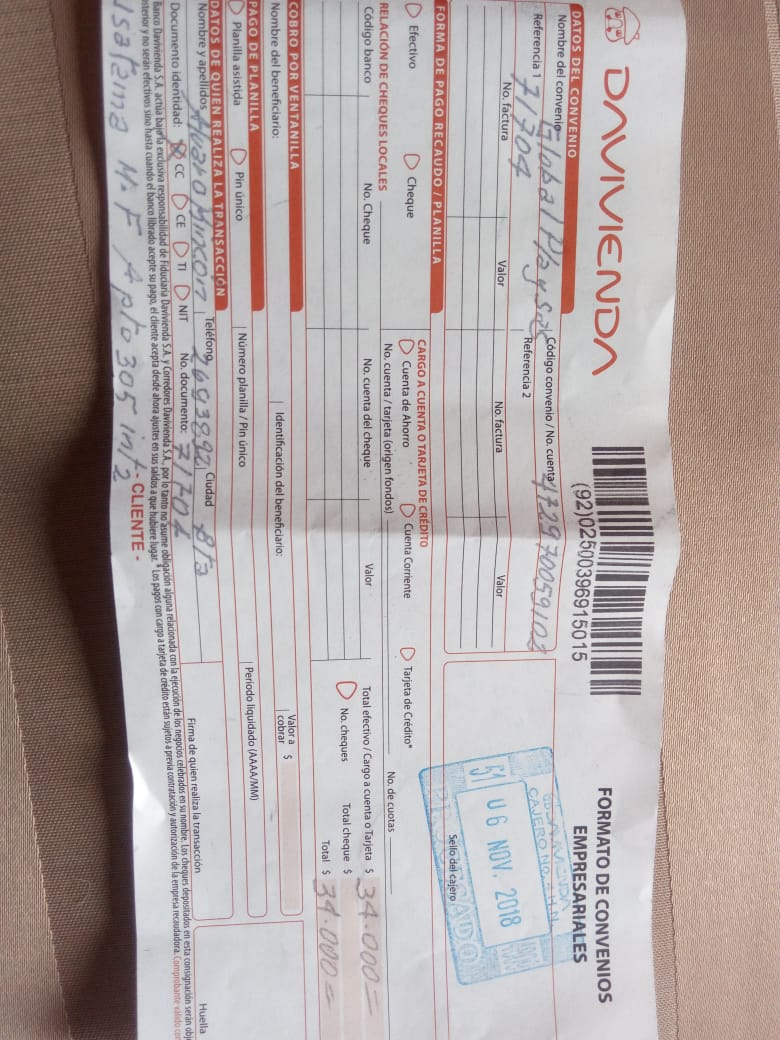 DAVIVIENDA
(92)02500396915015
FORMATO DE CONVENIOS
EMPRESARIALES
DATOS DEL CONVENIO
Nombre del convenio Global Play sas Código convenio / No. cuenta
Referencia 1 71704 Referencia 2
No. factura Valor No. factura Valor
CAJERO No. 4 H.N
51 06 NOV. 2018
Sello del cajero
FORMA DE PAGO RECAUDO / PLANILLA
Efectivo Cheque
CARGO A CUENTA O TARJETA DE CRÉDITO
Cuenta de Ahorro Cuenta Corriente Tarjeta de Crédito*
No. cuenta / tarjeta (origen fondos) No. de cuotas
RELACIÓN DE CHEQUES LOCALES
Código banco No. Cheque No. cuenta del cheque Valor
Total efectivo / Cargo a cuenta o Tarjeta $ 34.000=
No. cheques Total cheque $
Total $ 34.000=
COBRO POR VENTANILLA
Nombre del beneficiario: Identificación del beneficiario: Valor a cobrar $
PAGO DE PLANILLA
Planilla asistida Pin único Número planilla / Pin único Período liquidado (AAAA/MM)
DATOS DE QUIEN REALIZA LA TRANSACCIÓN
Nombre y apellidos Alvaro Rincón Teléfono Ciudad Bta
Documento identidad: CC CE TI NIT No. documento: 71704 Firma de quien realiza la transacción Huella
Banco Davivienda S.A. actúa bajo la exclusiva responsabilidad de Fiduciaria Davivienda S.A. y Corredores Davivienda S.A., por lo tanto no asume obligación alguna relacionada con la ejecución de los negocios celebrados en su nombre. Los cheques depositados en esta consignación serán
y no serán efectivos sino hasta cuando el banco librado acepte su pago, el cliente acepta desde ahora ajustes en sus saldos a que hubiere lugar. *Los pagos con cargo a tarjeta de crédito están sujetos a previa contratación y autorización de la empresa recaudadora. Comprobante válido
- CLIENTE -
M. F Apto 305 int 2